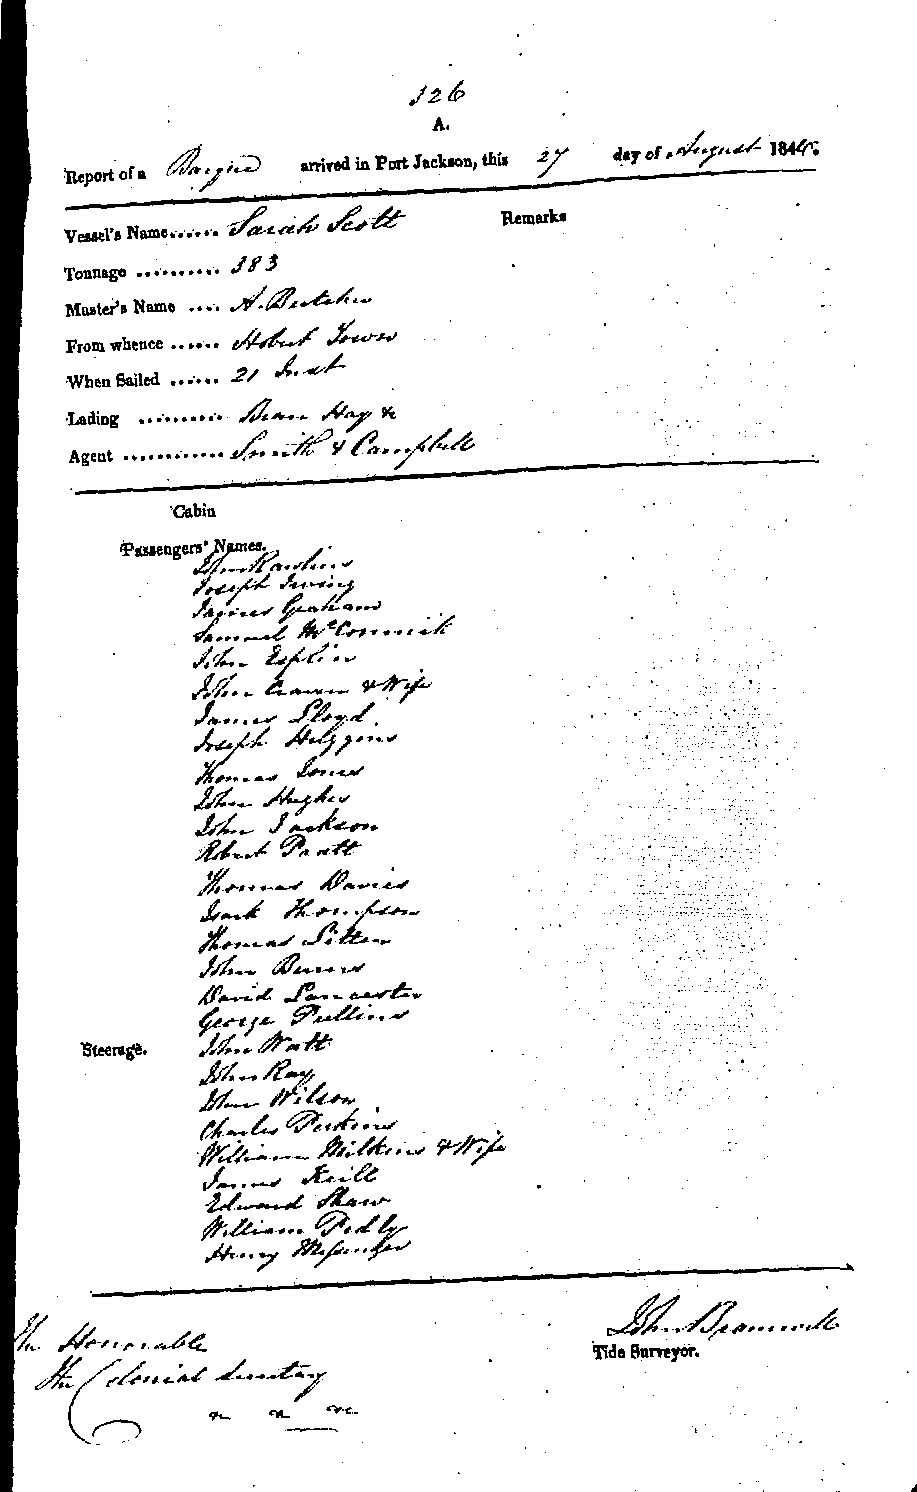 126
A.
Report of a Barque arrived in Port Jackson, this 27 day of August 184
Vessel's Name...... Sarah Scott Remarks
Tonnage .......... 383
Master's Name .... A. Butcher
From whence ...... Hobart Town
When Sailed ...... 21 Inst
Lading ........... Bran Hay &c
Agent ............ Smith & Campbell
Cabin
Passengers' Names.
John Rawlins
Joseph Irving
James Graham
Samuel McCormick
John Esplin
John Craven & Wife
James Lloyd
Joseph Higgins
Thomas Jones
John Hughes
John Jackson
Robert Pratt
Thomas Davies
Isack Thompson
Thomas Litten
John Burns
David Lancaster
George Pullins
Steerage. John Watt
John Ray
John Wilson
Charles Perkins
William Milkins & Wife
James Keill
Edward Shaw
William Pedly
Henry Mesenger
The Honorable John Bramwell
Tide Surveyor.
The Colonial Secretary
&c &c &c